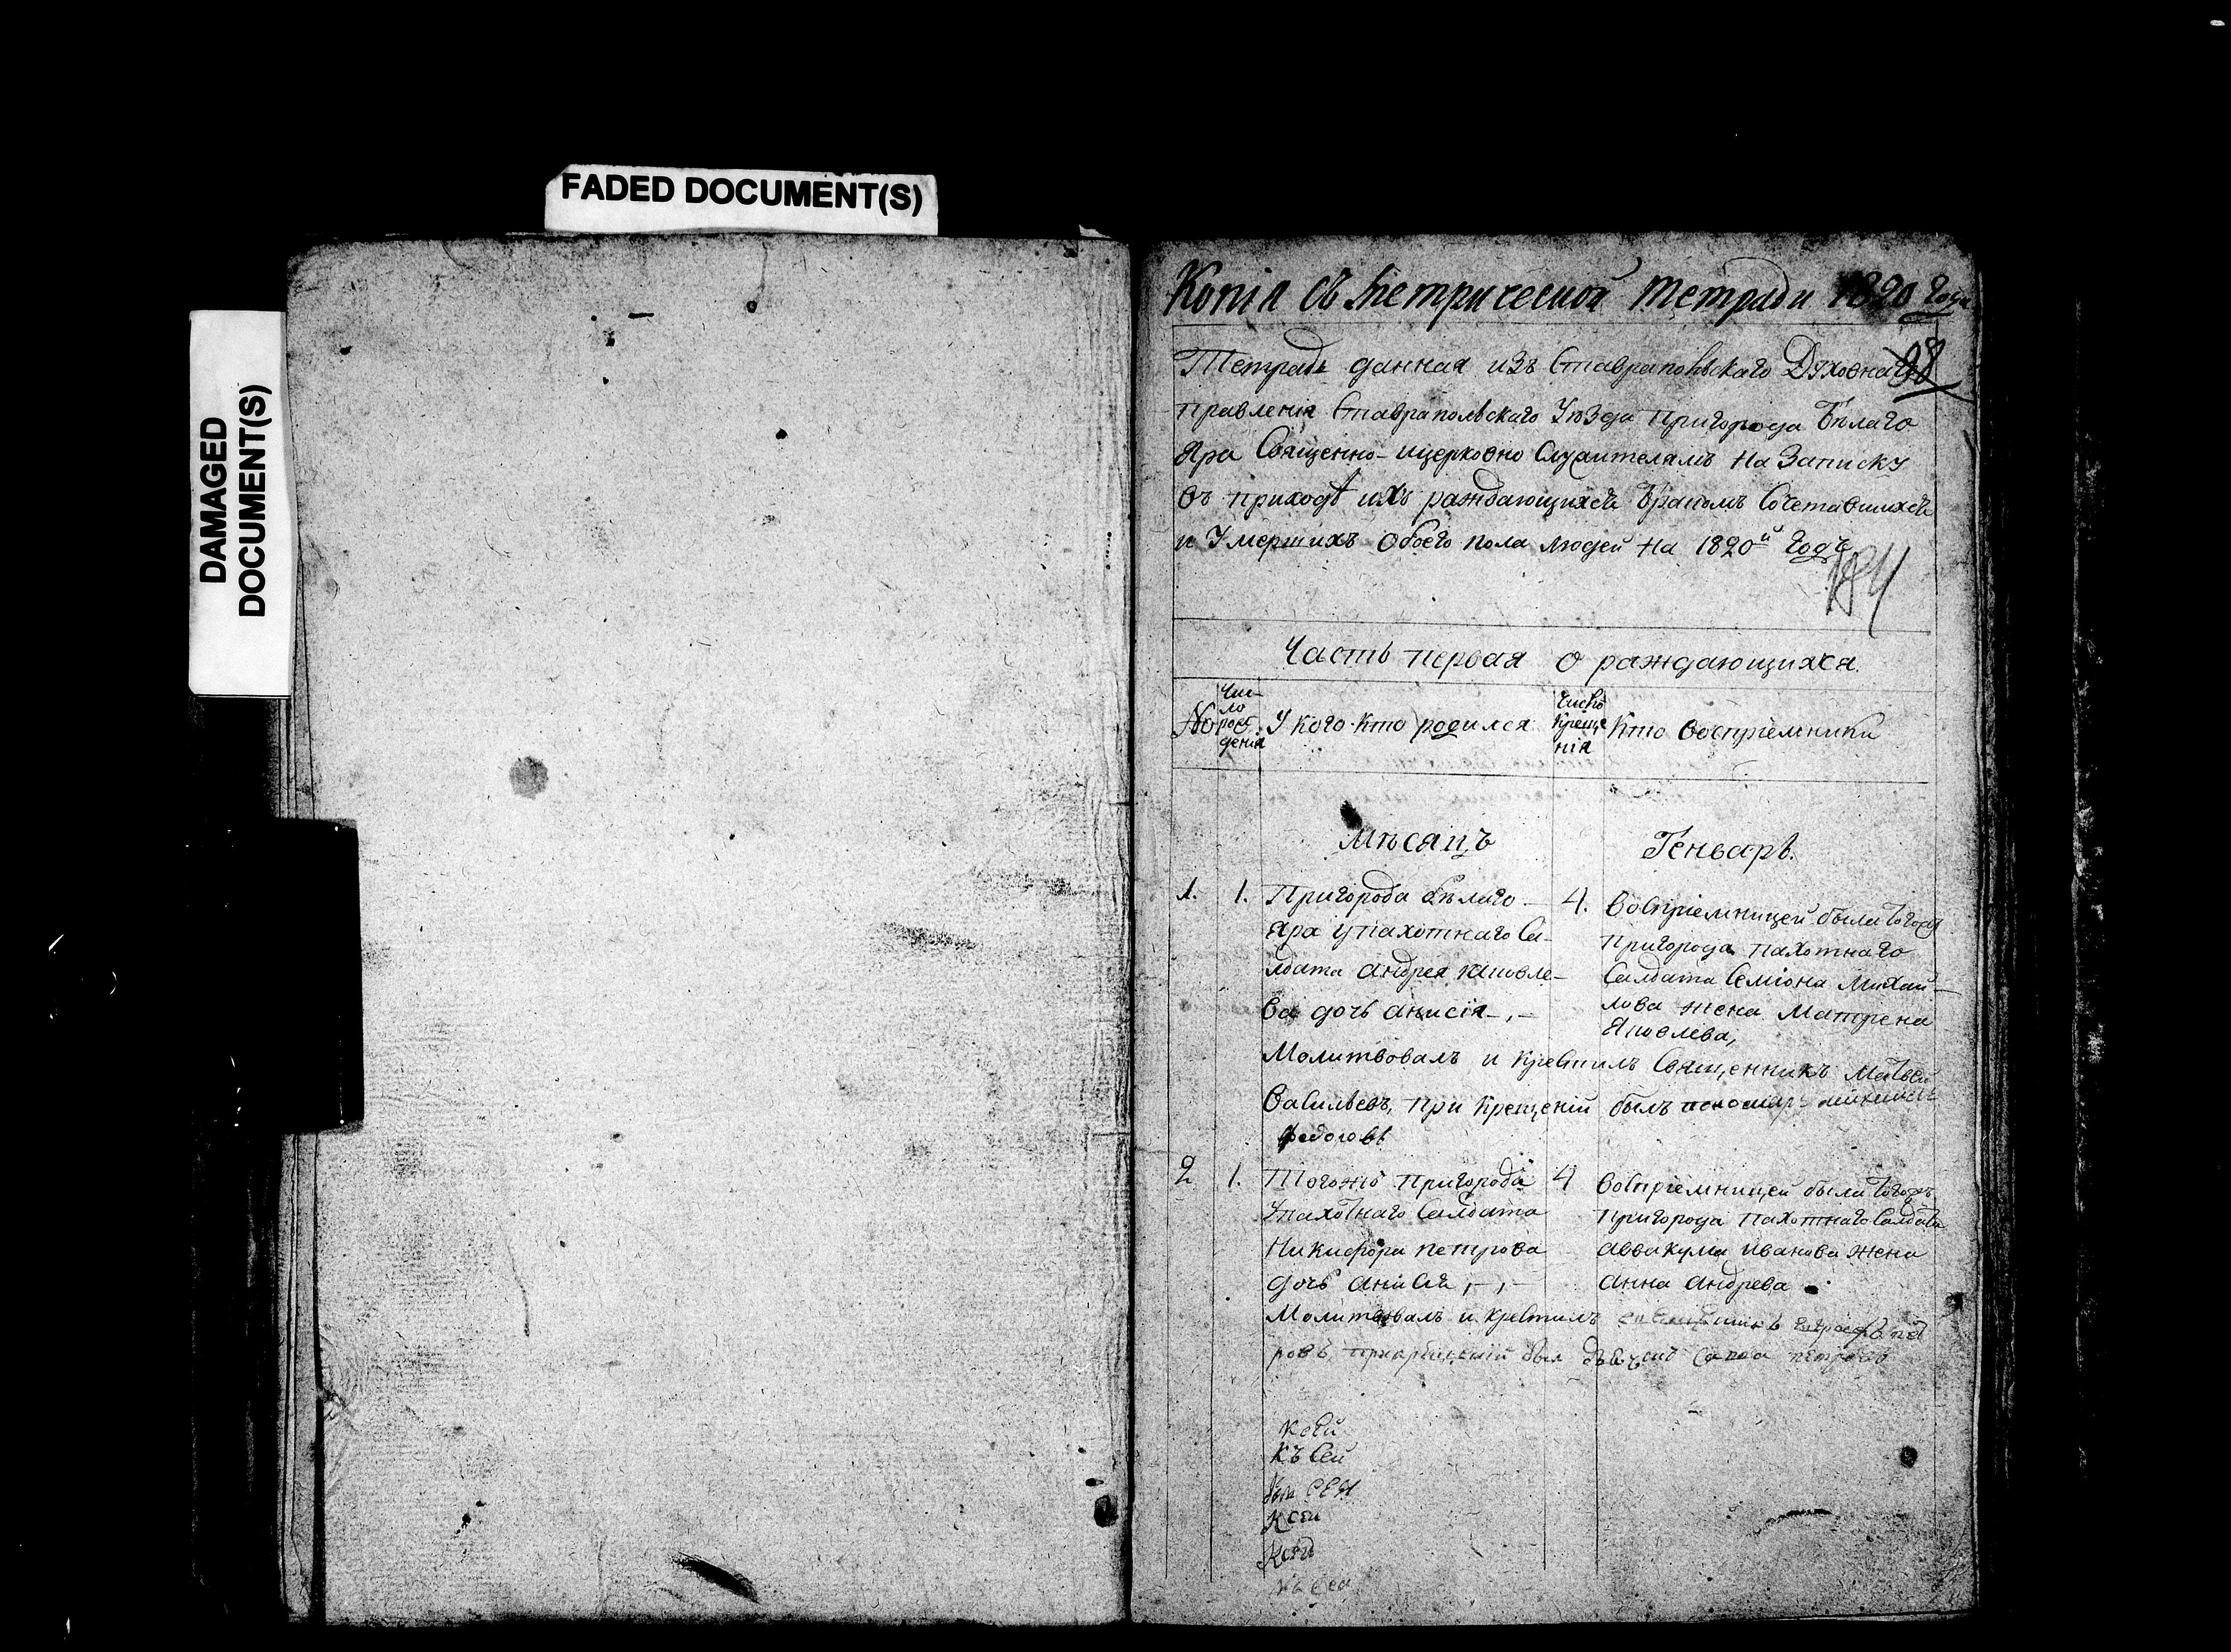 FADED DOCUMENT(S)
DAMAGED
DOCUMENT(S)
Копія съ метрической тетради 1820 Года
98
Тетрадь данная изъ Ставрапольскаго Духовнаго
правленія Ставрапольскаго Уѣзда Пригорода Бѣлаго
Яра Священно-ицерковно Служителямъ На Записку
въ приходѣ ихъ раждающихся бракомъ Сочетавшихся
и Умершихъ Обоего пола людей На 1820й Годъ
184
Часть первая о раждающихся.
№ Чи-
сло
рож
денія
У кого кто родился
Число
Креще
нія
Кто восприемники
Мѣсяцъ Генварь.
1. 1. Пригорода бѣлаго
Яра упахотнаго Са-
лдата андрея яковле-
ва дочь анисія
4. Восприемницей была тогожъ
пригорода пахотнаго
Салдата Семіона Михай-
лова жена Матрена
Яковлева,
Молитвовалъ и крестилъ Священникъ Матвей
Васильевъ, при крещеніи былъ пономарь
федоровъ
2 1. Тогожъ пригорода
Упахотнаго Салдата
Никифора петрова
дочь анисія
4 восприемницей была тогожъ
пригорода пахотнаго Салдата
аввакума иванова жена
анна андрева
Молитвовалъ и крестилъ
ровъ, при крещеніи был петровъ
къ сей